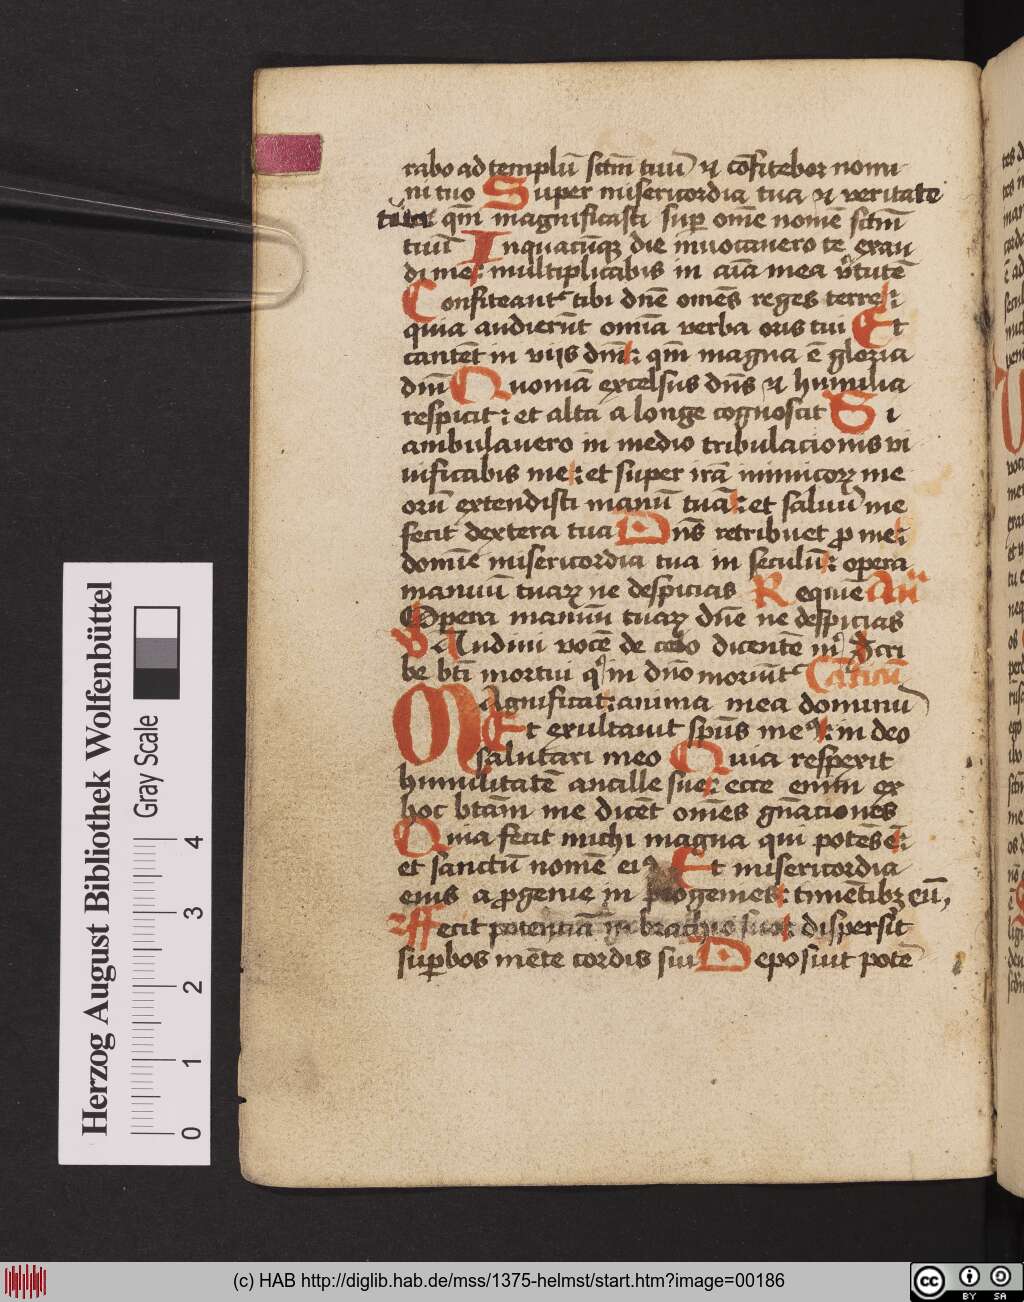 rabo ad templū sctm̄ tuū ⁊ cōfitebor nomi
ni tuo Super misericordia tua ⁊ veritate
tua qm̄ magnificasti sup̄ om̄e nomē sctm̄
tuū Inquacūqꝫ die inuocauero te exau
di me: multiplicabis in aīa mea v̓tutē
Confiteant᷑ tibi dn̄e om̄es reges terre:
quia audierūt omīa verba oris tui Et
cantēt in vijs dn̄i: qm̄ magna ē gloria
dn̄i Quoniā excelsus dn̄s ⁊ humilia
respicit: et alta a longe cognoscit Si
ambulauero in medio tribulacionis vi
uificabis me: et super irā inimicoꝝ me
orū extendisti manū tuā: et saluū me
fecit dextera tua Dn̄s retribuet ꝓ me:
domīe misericordia tua in seculū: opera
manuū tuaꝝ ne despicias Requiē An̄
Opera manuū tuaꝝ dn̄e ne despicias
V Audiui vocē de celo dicentē m̓ Scri
be bt̄i mortui q̓ in dn̄o moriūt᷑ Canticū
Magnificat: anima mea dominū
Et exultauit spūs meꝰ: in deo
salutari meo Quia respexit
humilitatē ancille sue: ecce enim ex
hoc btām me dicēt om̄es gn̄aciones
Quia fecit michi magna qui potēs ē:
et sanctū nomē eiꝰ Et misericordia
eius a ꝓgenie in progenies: timētibꝫ eū,
Fecit potentiā in brachio suo: dispersit
sup̄bos mēte cordis sui Deposuit potē
Herzog August Bibliothek Wolfenbüttel
Gray Scale
0 1 2 3 4
(c) HAB http://diglib.hab.de/mss/1375-helmst/start.htm?image=00186
cc BY SA